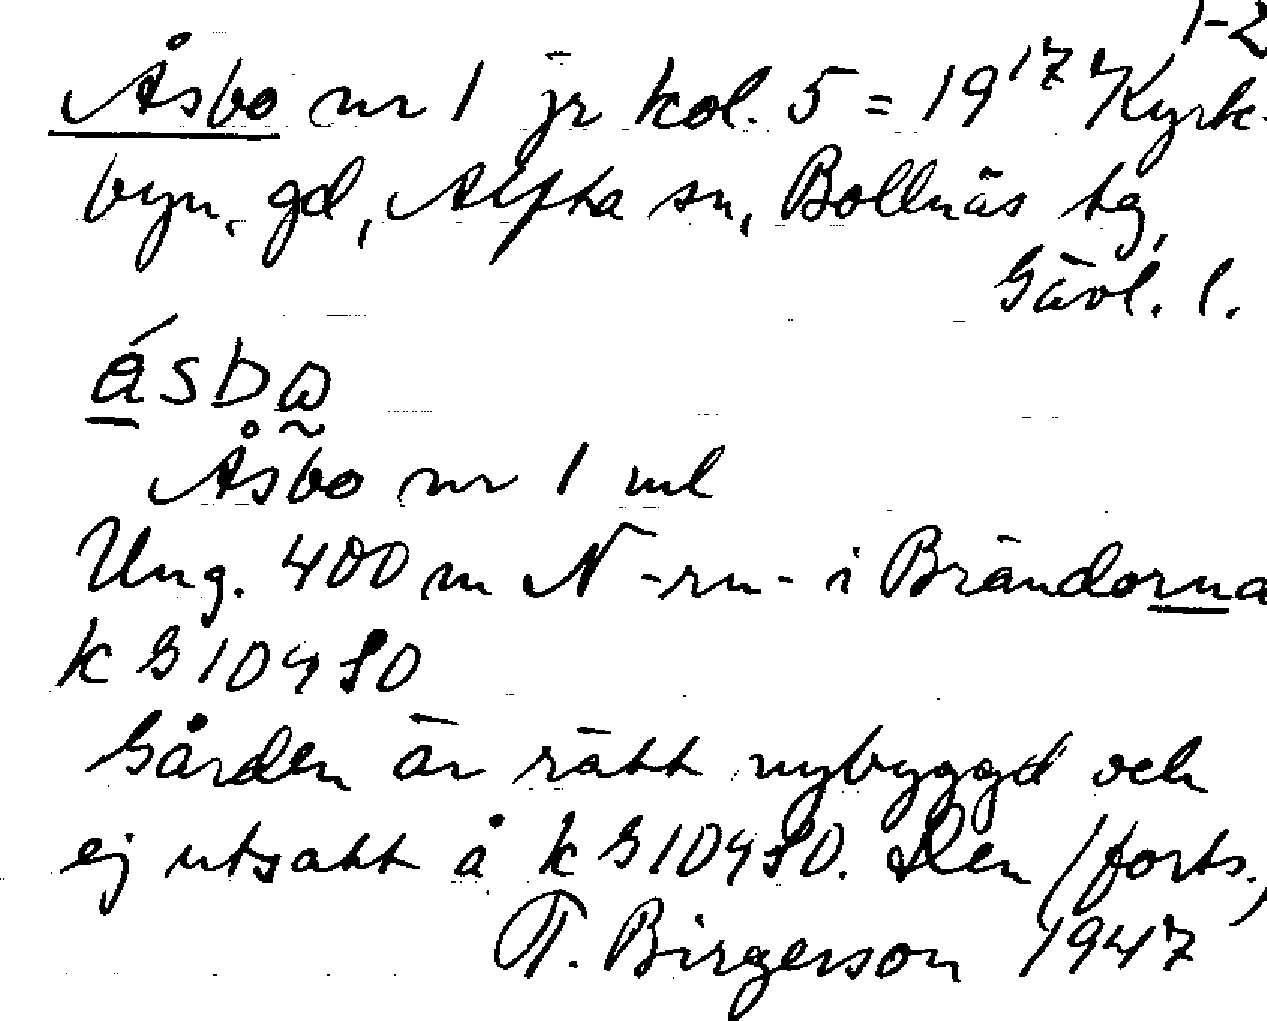 1-2
Åsbo nr 1 jr kol. 5 = 19¹⁷ Kyrk-
byn, gd, Alfta sn, Bollnäs tg,
Gävl. l.
ásbω
Åsbo nr 1 ml
Ung. 400 m N -rn- i Brändorna
k G 10480
Gården är rätt nybyggd och
ej utsatt å k G 10480. Den (forts.)
T. Birgerson 1947